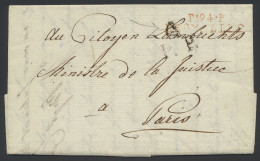 P.94.P
au Citoyen Lambrechts
Ministre de la Justice
a
Paris